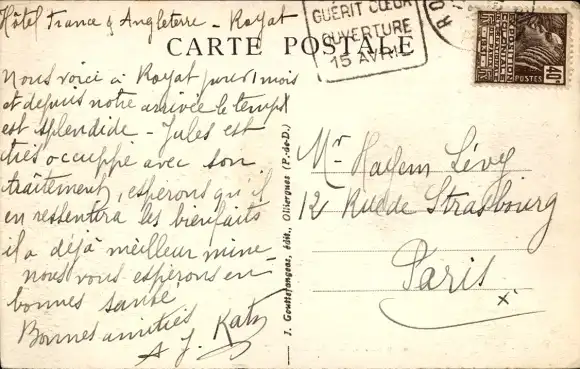 Hôtel France & Angleterre - Royat
GUÉRIT CŒUR
OUVERTURE
15 AVRIL
RO
POSTES
40c
CARTE POSTALE
Nous voici à Royat pour 1 mois
et depuis notre arrivée le temps
est splendide - Jules est
très occuppé avec son
traîtement, espérons qu'il
en ressentira les bienfaits
il a déjà meilleur mine -
nous vous espérons en
bonnes santé
Bonnes amitiés
A J. Katz
J. Gouttefangeas, édit., Olliergues (P.-de-D.)
Mr Hayem Lévy
12 Rue de Strasbourg
Paris
x